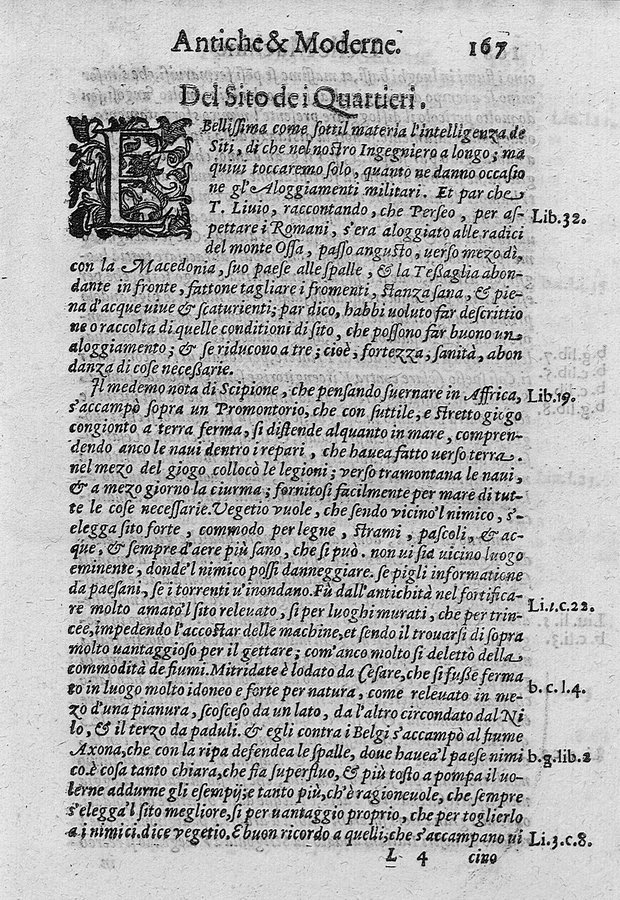 Antiche & Moderne. 167
Del Sito de i Quartieri.
E Bellissima come sottil materia l'intelligenza de
Siti, di che nel nostro Ingegniero a longo; ma
quiui toccaremo solo, quanto ne danno occasio
ne gl'Aloggiamenti militari. Et par che
T. Liuio, raccontando, che Perseo, per as-
pettare i Romani, s'era aloggiato alle radici
del monte Ossa, passo angusto, uerso mezo dì,
con la Macedonia, suo paese alle spalle, & la Tessaglia abon-
dante in fronte, fattone tagliare i fromenti, stanza sana, & pie-
na d'acque uiue & scaturienti; par dico, habbi uoluto far descrittio
ne o raccolta di quelle conditioni di sito, che possono far buono un
aloggiamento; & se riducono a tre; cioè, fortezza, sanità, abon
danza di cose necessarie.
Lib.32.
Il medemo nota di Scipione, che pensando suernare in Affrica,
s'accampò sopra un Promontorio, che con suttile, e stretto giogo
congionto a terra ferma, si distende alquanto in mare, compren-
dendo anco le naui dentro i repari, che hauea fatto uerso terra.
nel mezo del giogo collocò le legioni; uerso tramontana le naui,
& a mezo giorno la ciurma; fornitosi facilmente per mare di tut-
te le cose necessarie. Vegetio vuole, che sendo vicino'l nimico, s'-
elegga sito forte, commodo per legne, strami, pascoli, & ac-
que, & sempre d'aere più sano, che si può. non ui sia uicino luogo
eminente, donde'l nimico possi danneggiare. se pigli informatione
da paesani, se i torrenti u'inondano. Fù dall'antichità nel fortifica-
re molto amato'l sito releuato, si per luoghi murati, che per trin-
cee, impedendo l'accostar delle machine, et sendo il trouarsi di sopra
molto uantaggioso per il gettare; com'anco molto si delettò della
commodità de fiumi. Mitridate è lodato da Cesare, che si fusse ferma
to in luogo molto idoneo e forte per natura, come releuato in me-
zo d'una pianura, scosceso da un lato, da l'altro circondato dal Ni
lo, & il terzo da paduli. & egli contra i Belgi s'accampò al fiume
Axona, che con la ripa defendea le spalle, doue hauea'l paese nimi
co. è cosa tanto chiara, che fia superfluo, & più tosto a pompa il uo-
lerne addurne gli esempij; e tanto più, ch'è ragioneuole, che sempre
s'elegga'l sito megliore, si per uantaggio proprio, che per toglierlo
a i nimici. dice vegetio. E buon ricordo a quelli, che s'accampano ui
Lib.19.
Li.1.c.22.
b.c.l.4.
b.g.lib.2
Li.3.c.8.
L 4 cino